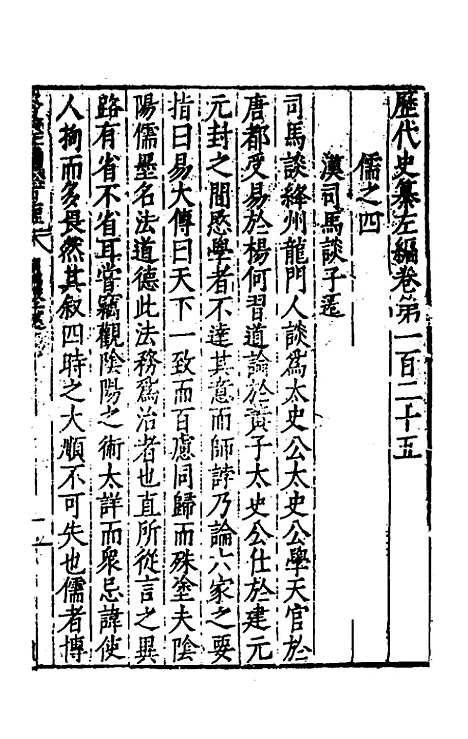 歷代史纂左編卷第一百二十五
儒之四
漢司馬談子遷
司馬談絳州龍門人談爲太史公太史公學天官於
唐都受易於楊何習道論於黃子太史公仕於建元
元封之間愍學者不達其意而師誖乃論六家之要
指曰易大傳曰天下一致而百慮同歸而殊塗夫陰
陽儒墨名法道德此法務爲治者也直所從言之異
路有省不省耳嘗竊觀隂陽之術太詳而衆忌諱使
人拘而多畏然其叙四時之大順不可失也儒者博